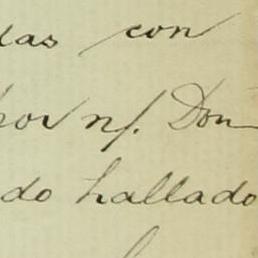 das con
por nf. Don
do hallado